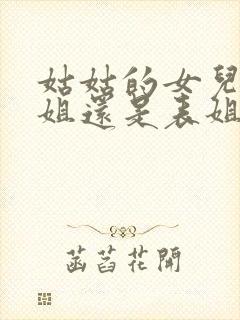 姑姑的女兒
姐還是表姐
菡萏花開